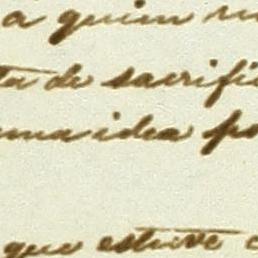 a quien
de sacrifi
una idea po
que estuve c